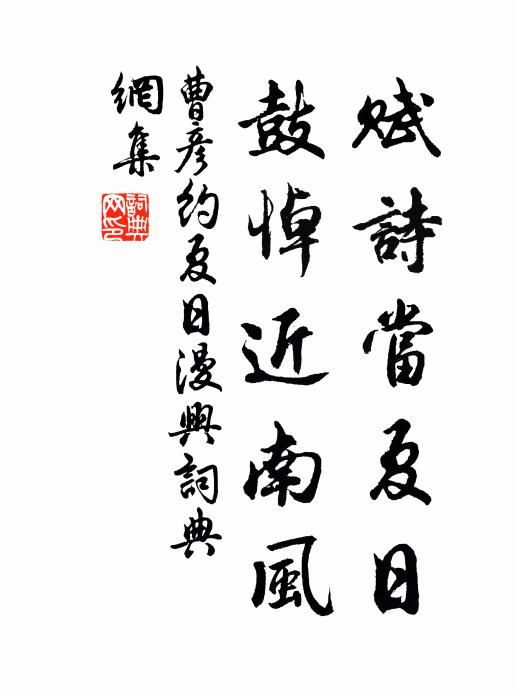 賦詩當夏日
鼓悼近南風
曹彥約夏日漫興詞典
網集
詞典
网印